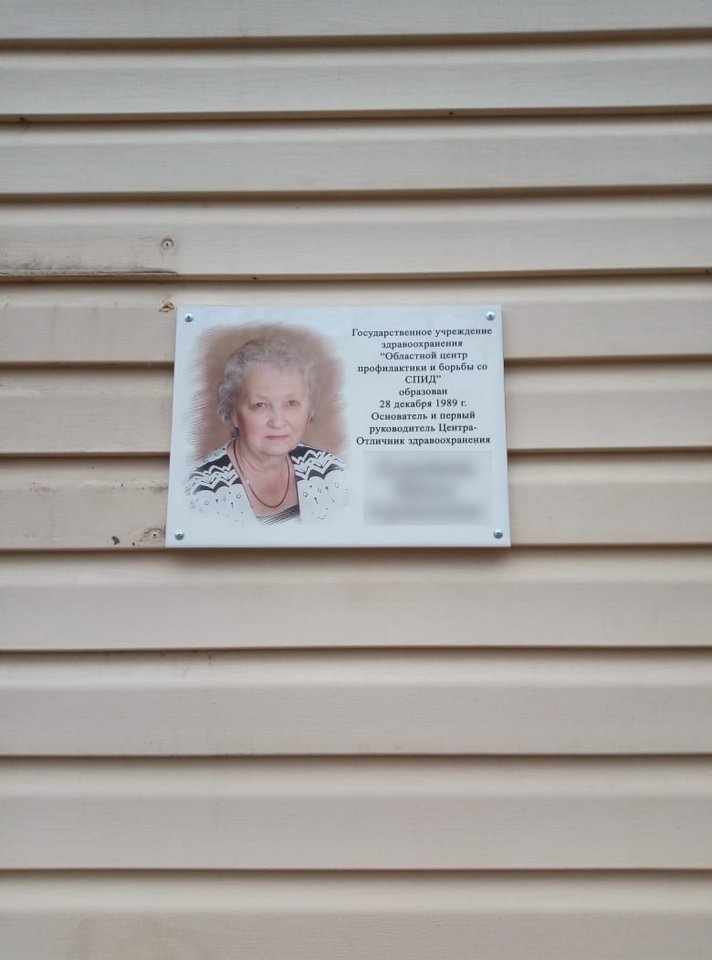 Государственное учреждение
здравоохранения
“Областной центр
профилактики и борьбы со
СПИД”
образован
28 декабря 1989 г.
Основатель и первый
руководитель Центра-
Отличник здравоохранения